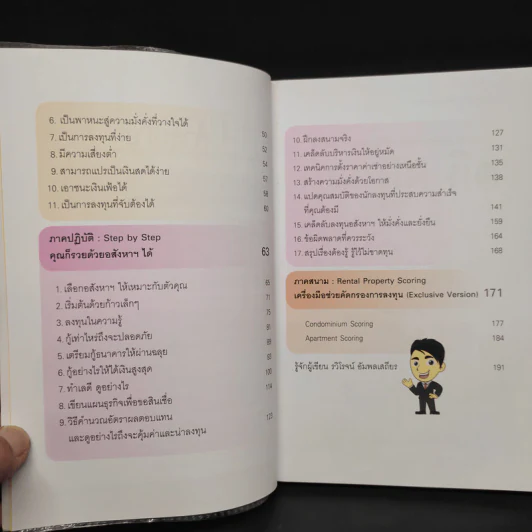 6. เป็นพาหนะสู่ความมั่งคั่งที่วางใจได้ 50
7. เป็นการลงทุนที่ง่าย 52
8. มีความเสี่ยงต่ำ 54
9. สามารถแปรเป็นเงินสดได้ง่าย
10. เอาชนะเงินเฟ้อได้ 58
11. เป็นการลงทุนที่จับต้องได้ 60
ภาคปฏิบัติ : Step by Step
คุณก็รวยด้วยอสังหาฯ ได้ 63
1. เลือกอสังหาฯ ให้เหมาะกับตัวคุณ 65
2. เริ่มต้นด้วยก้าวเล็กๆ 71
3. ลงทุนในความรู้ 75
4. กู้เท่าไหร่ถึงจะปลอดภัย
5. เตรียมกู้ธนาคารให้ผ่านฉลุย 89
6. กู้อย่างไรให้ได้เงินสูงสุด
7. ทำเลดี ดูอย่างไร 100
8. เขียนแผนธุรกิจเพื่อขอสินเชื่อ 114
9. วิธีคำนวณอัตราผลตอบแทน
และดูอย่างไรถึงจะคุ้มค่าและน่าลงทุน
10. ฝึกลงสนามจริง 127
11. เคล็ดลับบริหารเงินให้อยู่หมัด 131
12. เทคนิคการตั้งราคาค่าเช่าอย่างเหนือชั้น 135
13. สร้างความมั่งคั่งด้วยโอกาส 138
14. แปดคุณสมบัติของนักลงทุนที่ประสบความสำเร็จ
ที่คุณต้องมี 141
15. เคล็ดลับลงทุนอสังหาฯ ให้มั่งคั่งและยั่งยืน 159
16. ข้อผิดพลาดที่ควรระวัง 164
17. สรุปเรื่องต้องรู้ รู้ไว้ไม่ขาดทุน 168
ภาคสนาม : Rental Property Scoring
เครื่องมือช่วยคัดกรองการลงทุน (Exclusive Version) 171
Condominium Scoring 177
Apartment Scoring 184
รู้จักผู้เขียน รวีโรจน์ อัมพลเสถียร 191